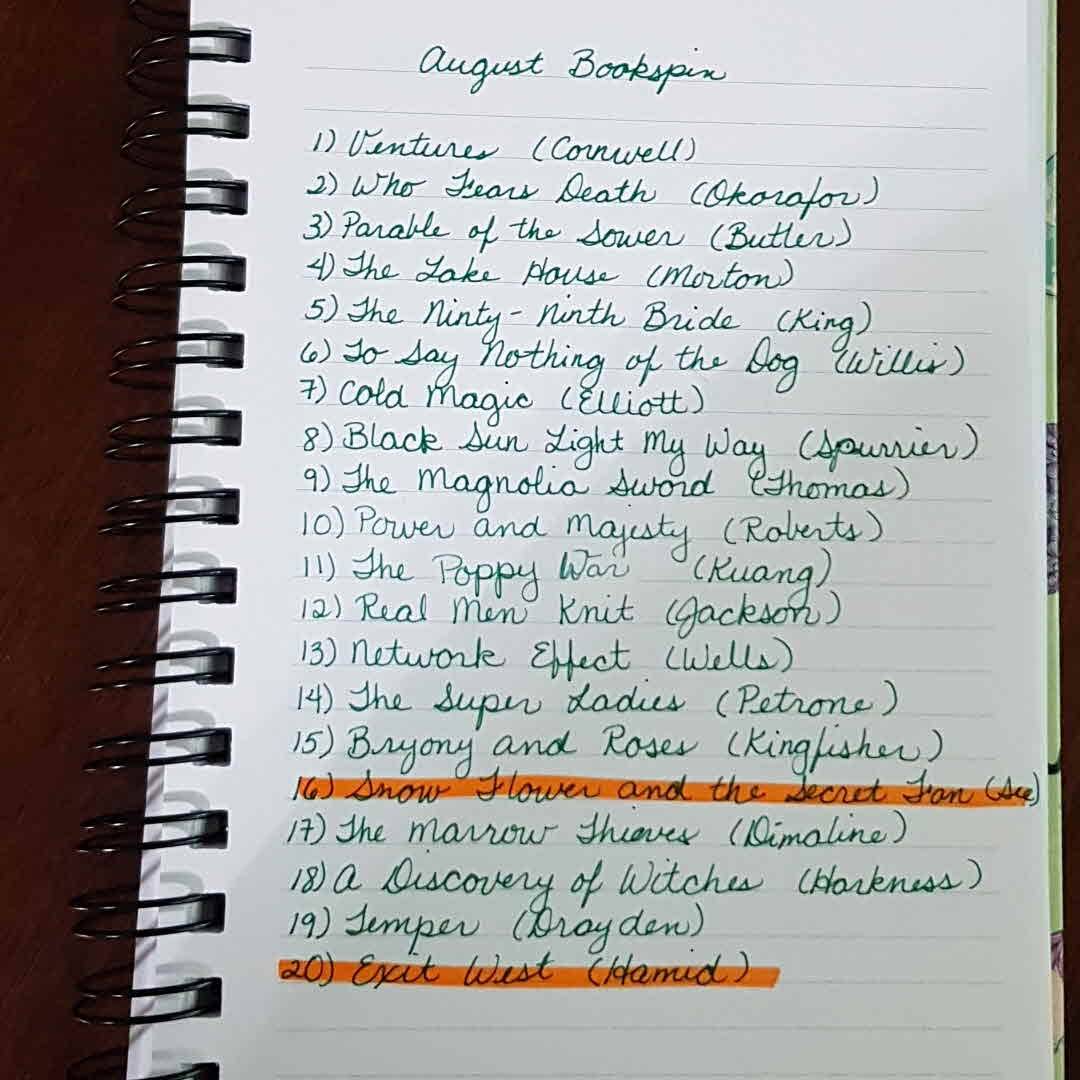 August Bookspin
1) Ventures (Cornwell)
2) Who Fears Death (Okorafor)
3) Parable of the Sower (Butler)
4) The Lake House (Morton)
5) The Ninty-Ninth Bride (King)
6) To Say Nothing of the Dog (Willis)
7) Cold Magic (Elliott)
8) Black Sun Light My Way (Spurrier)
9) The Magnolia Sword (Thomas)
10) Power and Majesty (Roberts)
11) The Poppy War (Kuang)
12) Real Men Knit (Jackson)
13) Network Effect (Wells)
14) The Super Ladies (Petrone)
15) Bryony and Roses (Kingfisher)
16) Snow Flower and the Secret Fan (See)
17) The Marrow Thieves (Dimaline)
18) A Discovery of Witches (Harkness)
19) Temper (Drayden)
20) Exit West (Hamid)